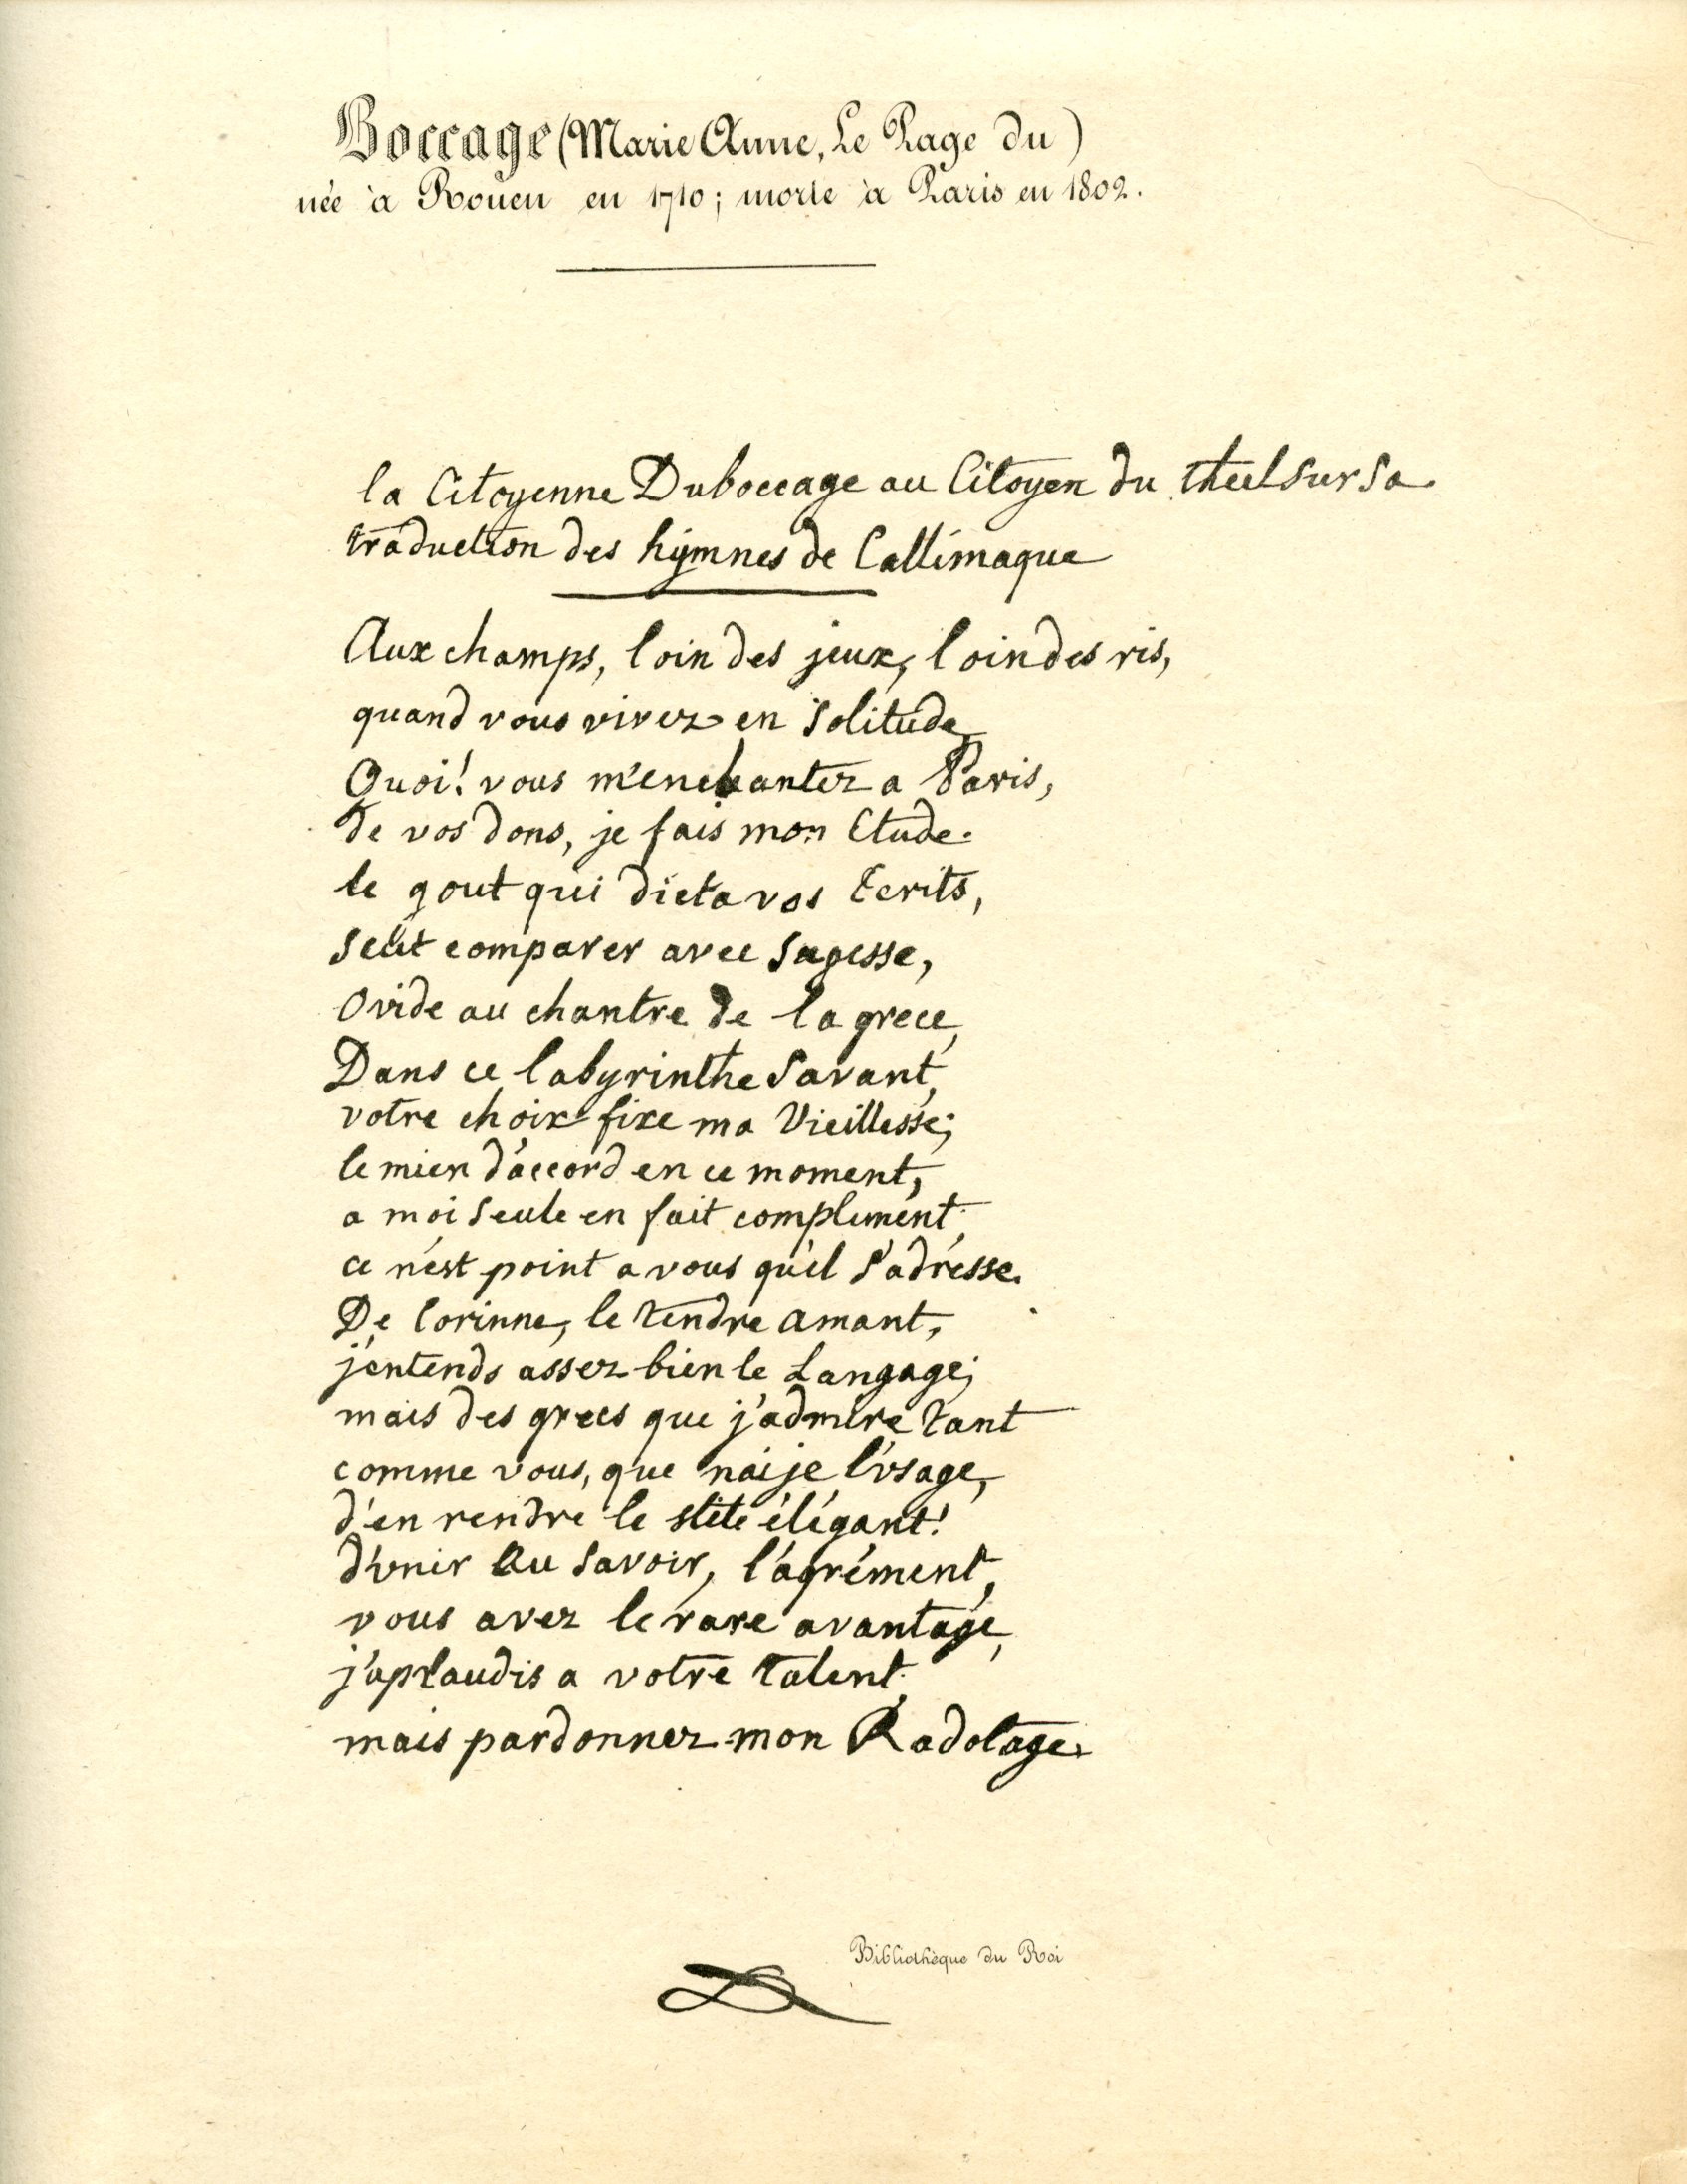 Boccage (Marie Anne, Le Page du)
née à Rouen en 1710; morte à Paris en 1802.
la Citoyenne Duboccage au Citoyen du theil sur sa
traduction des hymnes de Callimaque
Aux champs, loin des jeux, loin des ris,
quand vous vivez en solitude,
Quoi! vous m'enchantez a Paris,
de vos dons, je fais mon Etude.
le gout qui dicta vos Ecrits,
scut comparer avec sagesse,
Ovide au chantre de la grece,
Dans ce labyrinthe savant,
votre choix fixe ma Vieillesse;
le mien d'accord en ce moment,
a moi seule en fait compliment;
ce n'est point a vous qu'il s'adresse.
De Corinne, le tendre amant,
j'entends assez bien le Langage;
mais des grecs que j'admire tant
comme vous, que n'ai je l'vsage,
d'en rendre le stile élégant!
d'vnir au savoir, l'agrément,
vous avez le rare avantage,
j'aplaudis a votre talent,
mais pardonnez mon Radotage.
Bibliothèque du Roi